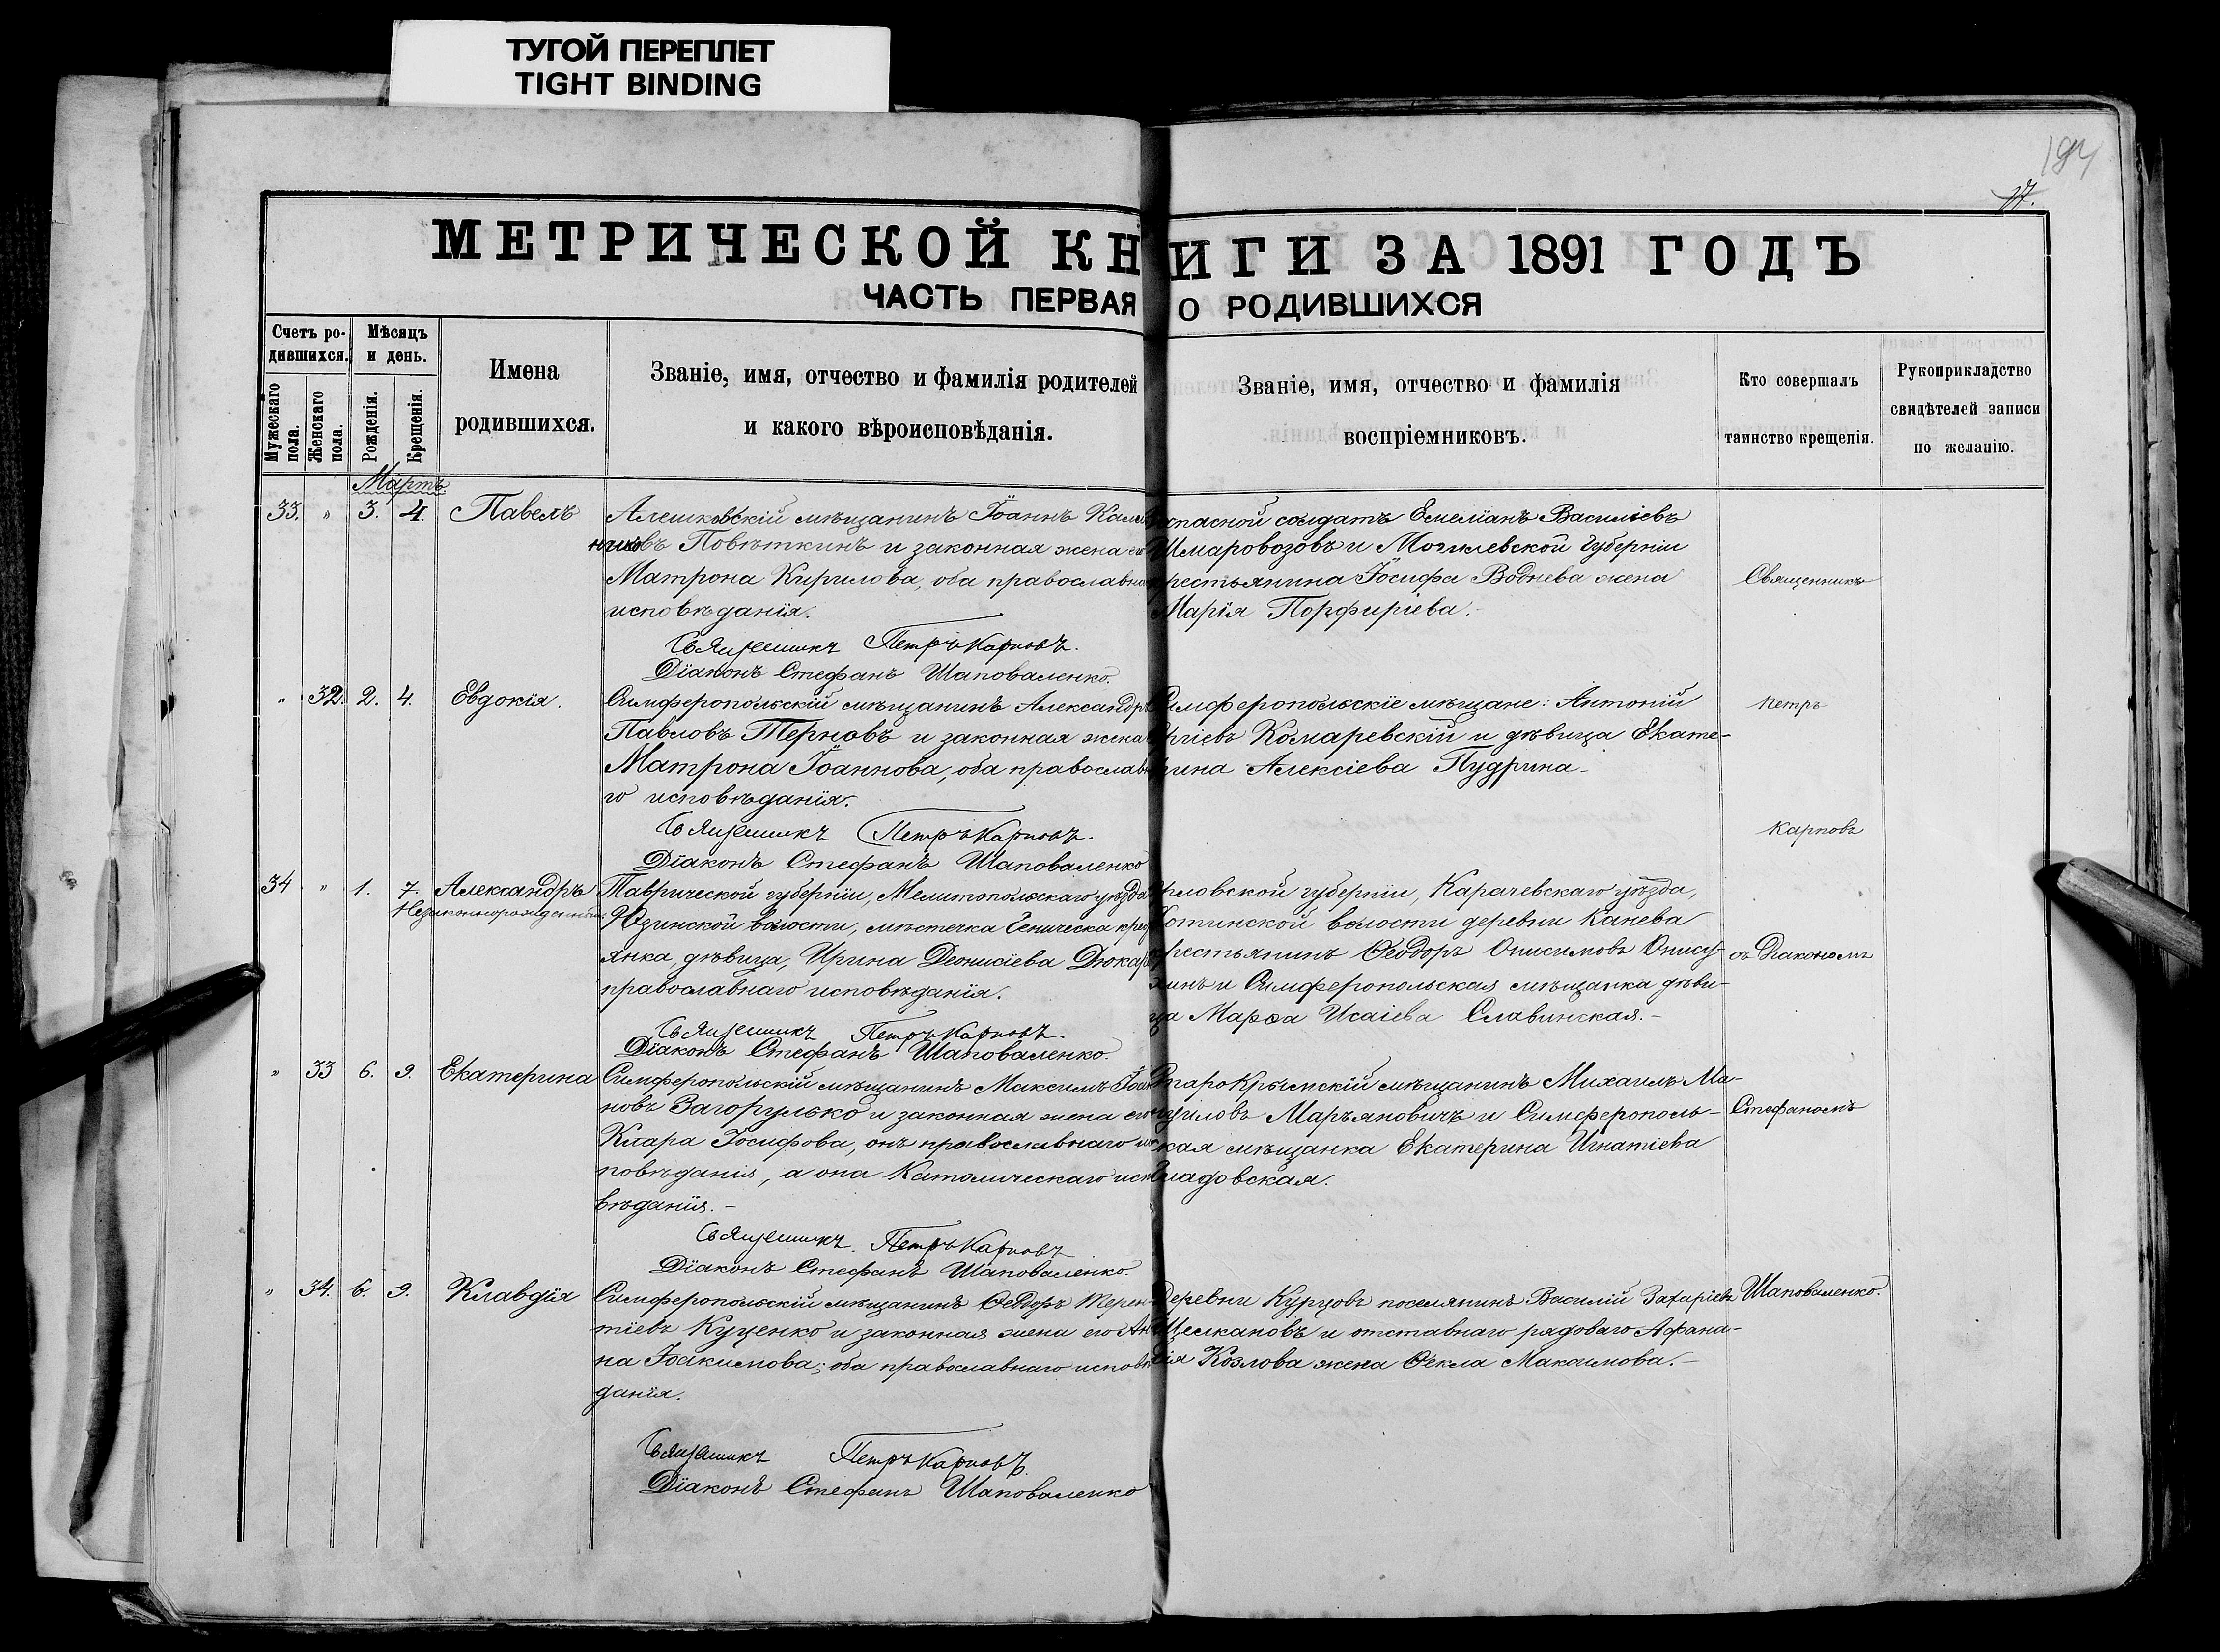 ТУГОЙ ПЕРЕПЛЕТ
TIGHT BINDING
194
17.
МЕТРИЧЕСКОЙ КНИГИ ЗА 1891 ГОДЪ
ЧАСТЬ ПЕРВАЯ О РОДИВШИХСЯ
Счетъ ро-
дившихся.
Мужескаго пола.
Женскаго пола.
Мѣсяцъ
и день.
Рожденія.
Крещенія.
Имена
родившихся.
Званіе, имя, отчество и фамилія родителей
и какого вѣроисповѣданія.
Званіе, имя, отчество и фамилія
воспріемниковъ.
Кто совершалъ
таинство крещенія.
Рукоприкладство
свидѣтелей записи
по желанію.
Мартъ
33. " 3. 4. Павелъ
Алешковскій мѣщанинъ Іоаннъ
Повѣткинъ и законная жена его
Матрона Кирилова, оба православна
исповѣданія.
Священникъ Петръ Карповъ.
Діаконъ Стефанъ Шаповаленко.
апасной солдатъ Емеліанъ Василіевъ
Шмаровозовъ и Могилевской губерніи
рестьянина Іосифа Воднева жена
Марія Порфиріева.
" 32. 2. 4. Евдокія.
Симферопольскій мѣщанинъ Александръ
Павловъ Терновъ и законная жена
Матрона Іоаннова, оба православн
го исповѣданія.
Священникъ Петръ Карповъ.
Діаконъ Стефанъ Шаповаленко
Симферопольскіе мѣщане: Антоній
Комаревскій и дѣвица Екате-
рина Алексіева Пудрина
34 " 1. 7. Александръ
Незаконнорожденный
Таврической губерніи, Мелитопольскаго уѣзда
Юзкинской волости, мѣстечка Геническа крест
янка дѣвица, Ирина Деонисіева
православнаго исповѣданія.
Священникъ Петръ Карповъ.
Діаконъ Стефанъ Шаповаленко.
рловской губерніи, Карачевскаго уѣзда,
волости деревни Канева
рестьянинъ Ѳеодоръ Онисимовъ
и Симферопольская мѣщанка дѣви-
ца Марѳа Исаіева Славинская.
" 33 6. 9. Екатерина
Симферопольскій мѣщанинъ Максимъ Іоан
новъ Загорулько и законная жена его
Клара Іосифова, онъ православнаго ис
повѣданія, а она Католическаго испо
вѣданія.
Священникъ Петръ Карповъ
Діаконъ Стефанъ Шаповаленко.
Старокрымскій мѣщанинъ Михаилъ Ма-
нуиловъ Марьяновичъ и Симферополь-
кая мѣщанка Екатерина Игнатіева
ладовская.
" 34. 6. 9. Клавдія
Симферопольскій мѣщанинъ Ѳеодоръ Терен-
тіевъ Куценко и законная жена его Ан
на Іоакимова; оба православнаго исповѣ
данія.
Священникъ Петръ Карповъ.
Діаконъ Стефанъ Шаповаленко
Деревни Курцовъ поселянинъ Василій Захаріевъ
Щелкановъ и отставнаго рядоваго Афана-
сія Козлова жена Ѳекла Максимова.
Священникъ
Петръ
Карповъ
съ Діакономъ
Стефаномъ
Шаповаленко.